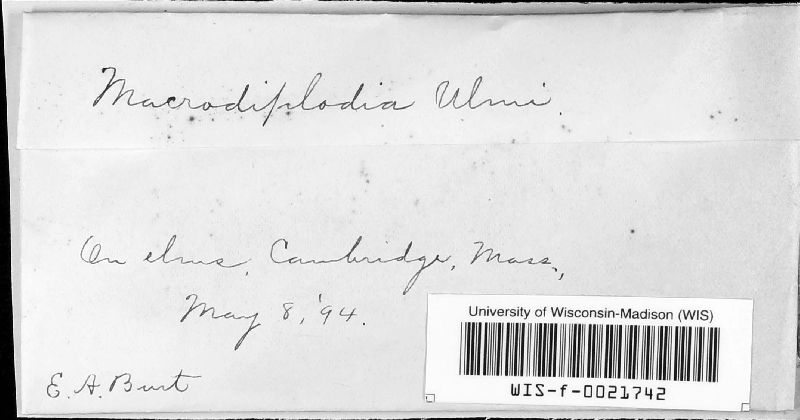 Macrodiplodia Ulmi.
On elms, Cambridge, Mass.,
May 8, '94.
E. A. Burt
University of Wisconsin-Madison (WIS)
WIS-f-0021742